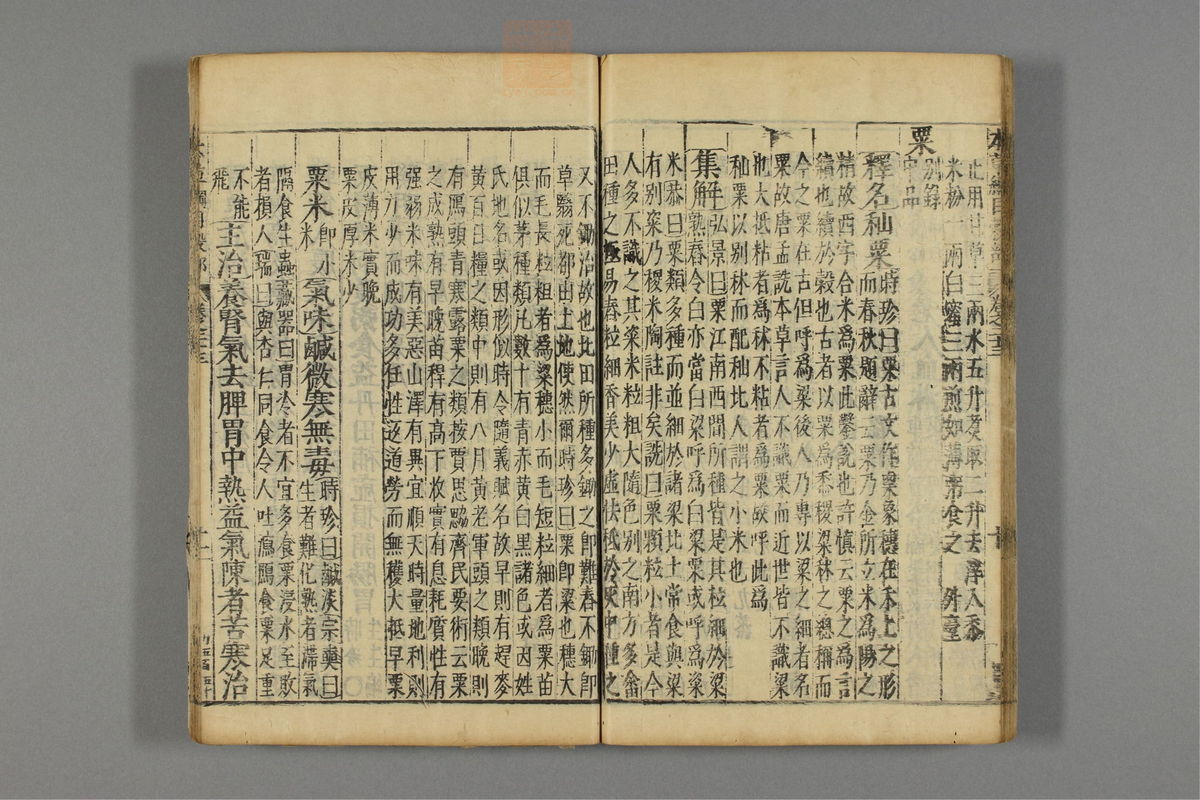 止用甘草三兩水五升煮取二升去滓入黍
米粉一兩白蜜三兩煎如薄粥食之 外臺
粟
別錄
中品
釋名秈粟時珍曰粟古文作𥻆象穗在禾上之形
而春秋題辭云粟乃金所立米為陽之
精故西字合米為粟此鑿說也許慎云粟之為言
續也續於穀也古者以粟為黍稷粱秫之總稱而
今之粟在古但呼為粱後人乃專以粱之細者名
粟故唐孟詵本草言人不識粟而近世皆不識粱
也大抵粘者為秫不粘者為粟故呼此為
秈粟以別秫而配秈北人謂之小米也
集解弘景曰粟江南西間所種皆是其粒細於粱
熟舂令白亦當白粱呼為白粱粟或呼為粢
米恭曰粟類多種而並細於諸粱北土常食與粱
有別粢乃稷米陶註非矣詵曰粟顆粒小者是今
人多不識之其粱米粒粗大隨色別之南方多畬
田種之極易舂粒細香美少虛怯秪於灰中種之
又不鋤治故也北田所種多鋤之即難舂不鋤即
草翳死都由土地使然爾時珍曰粟即粱也穗大
而毛長粒粗者為粱穗小而毛短粒細者為粟苗
俱似茅種類凡數十有青赤黃白黑諸色或因姓
氏地名或因形似時令隨義賦名故早則有趕麥
黃百日糧之類中則有八月黃老軍頭之類晚則
有鴈頭青寒露粟之類按賈思勰齊民要術云粟
之成熟有早晚苗稈有高下收實有息耗質性有
强弱米味有美惡山澤有異宜順天時量地利則
用力少而成功多任性返道勞而無穫大抵早粟
皮薄米實晚
粟皮厚米少
粟米即小米氣味鹹微寒無毒時珍曰鹹淡宗奭曰
生者難化熟者滯氣
隔食生蟲藏器曰胃冷者不宜多食粟浸水至敗
者損人瑞曰與杏仁同食令人吐瀉鴈食粟足重
不能
飛主治養腎氣去脾胃中熱益氣陳者苦寒治